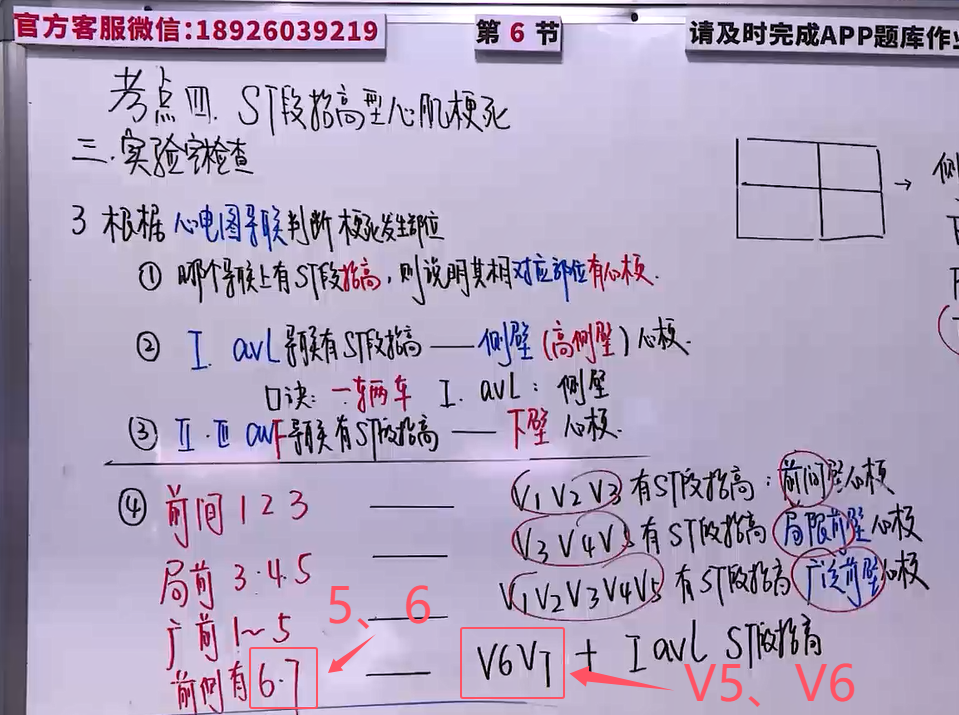 官方客服微信:18926039219
第 6 节
请及时完成APP题库作业
考点四. ST段抬高型心肌梗死
三.实验室检查
3 根据心电图导联判断梗死发生部位
① 哪个导联上有ST段抬高,则说明其相对应部位有心梗.
② I. avL导联有ST段抬高 —— 侧壁(高侧壁)心梗.
口诀: 一辆两车 I. avL: 侧壁
③ II.III avF导联有ST段抬高 —— 下壁心梗.
④ 前间 1 2 3 —— V1 V2 V3 有ST段抬高: 前间壁心梗
局前 3.4.5 —— V3 V4 V5 有ST段抬高 局限前壁心梗
广前 1~5 —— V1 V2 V3 V4 V5 有ST段抬高 广泛前壁心梗
5、6
前侧有 6.7 —— V6 V7 + I avL ST段抬高
V5、V6